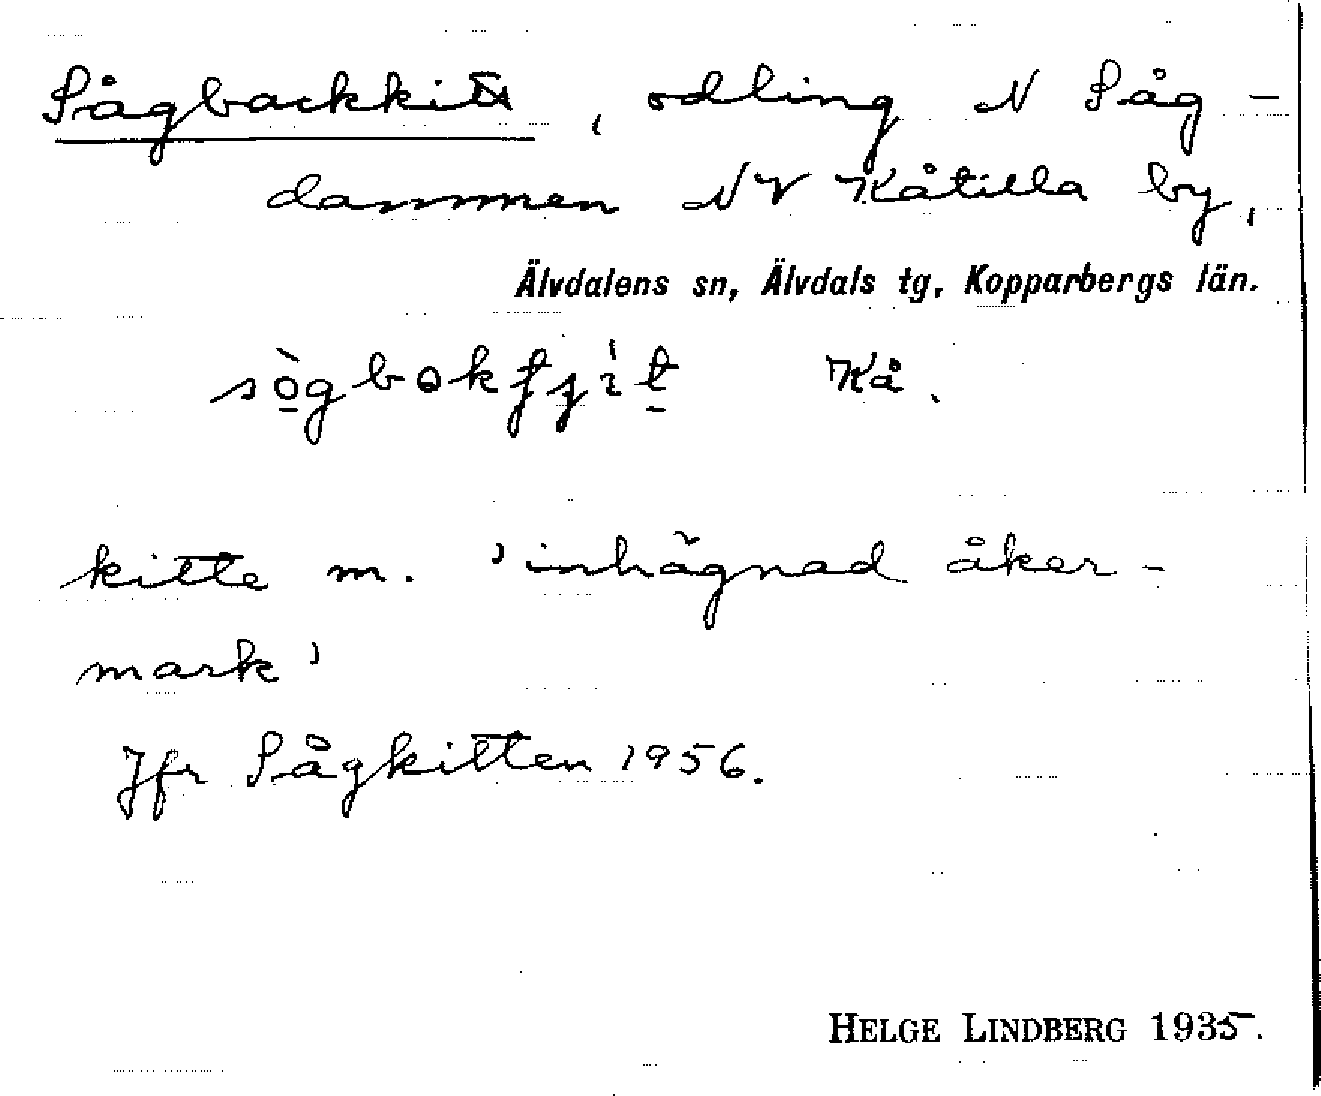 Sågbackkitt, odling N Såg-
dammen NV Kåtilla by,
Älvdalens sn, Älvdals tg, Kopparbergs län.
Kå.
kitte m. 'inhägnad åker-
mark'
Jfr Sågkitten 1956.
HELGE LINDBERG 1935.